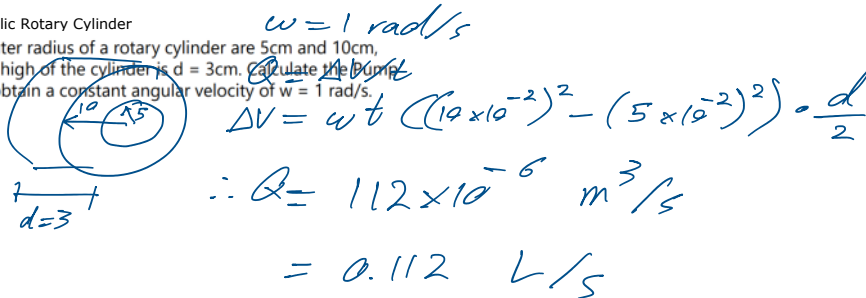 lic Rotary Cylinder
ω = 1 rad/s
ter radius of a rotary cylinder are 5cm and 10cm,
high of the cylinder is d = 3cm. Calculate the Pump
Q = ΔV/t
btain a constant angular velocity of w = 1 rad/s.
10
5
ΔV = ωt ((10 x10⁻²)² - (5 x10⁻²)²) • d/2
∴ Q = 112 x10⁻⁶ m³/s
d=3
= 0.112 L/s